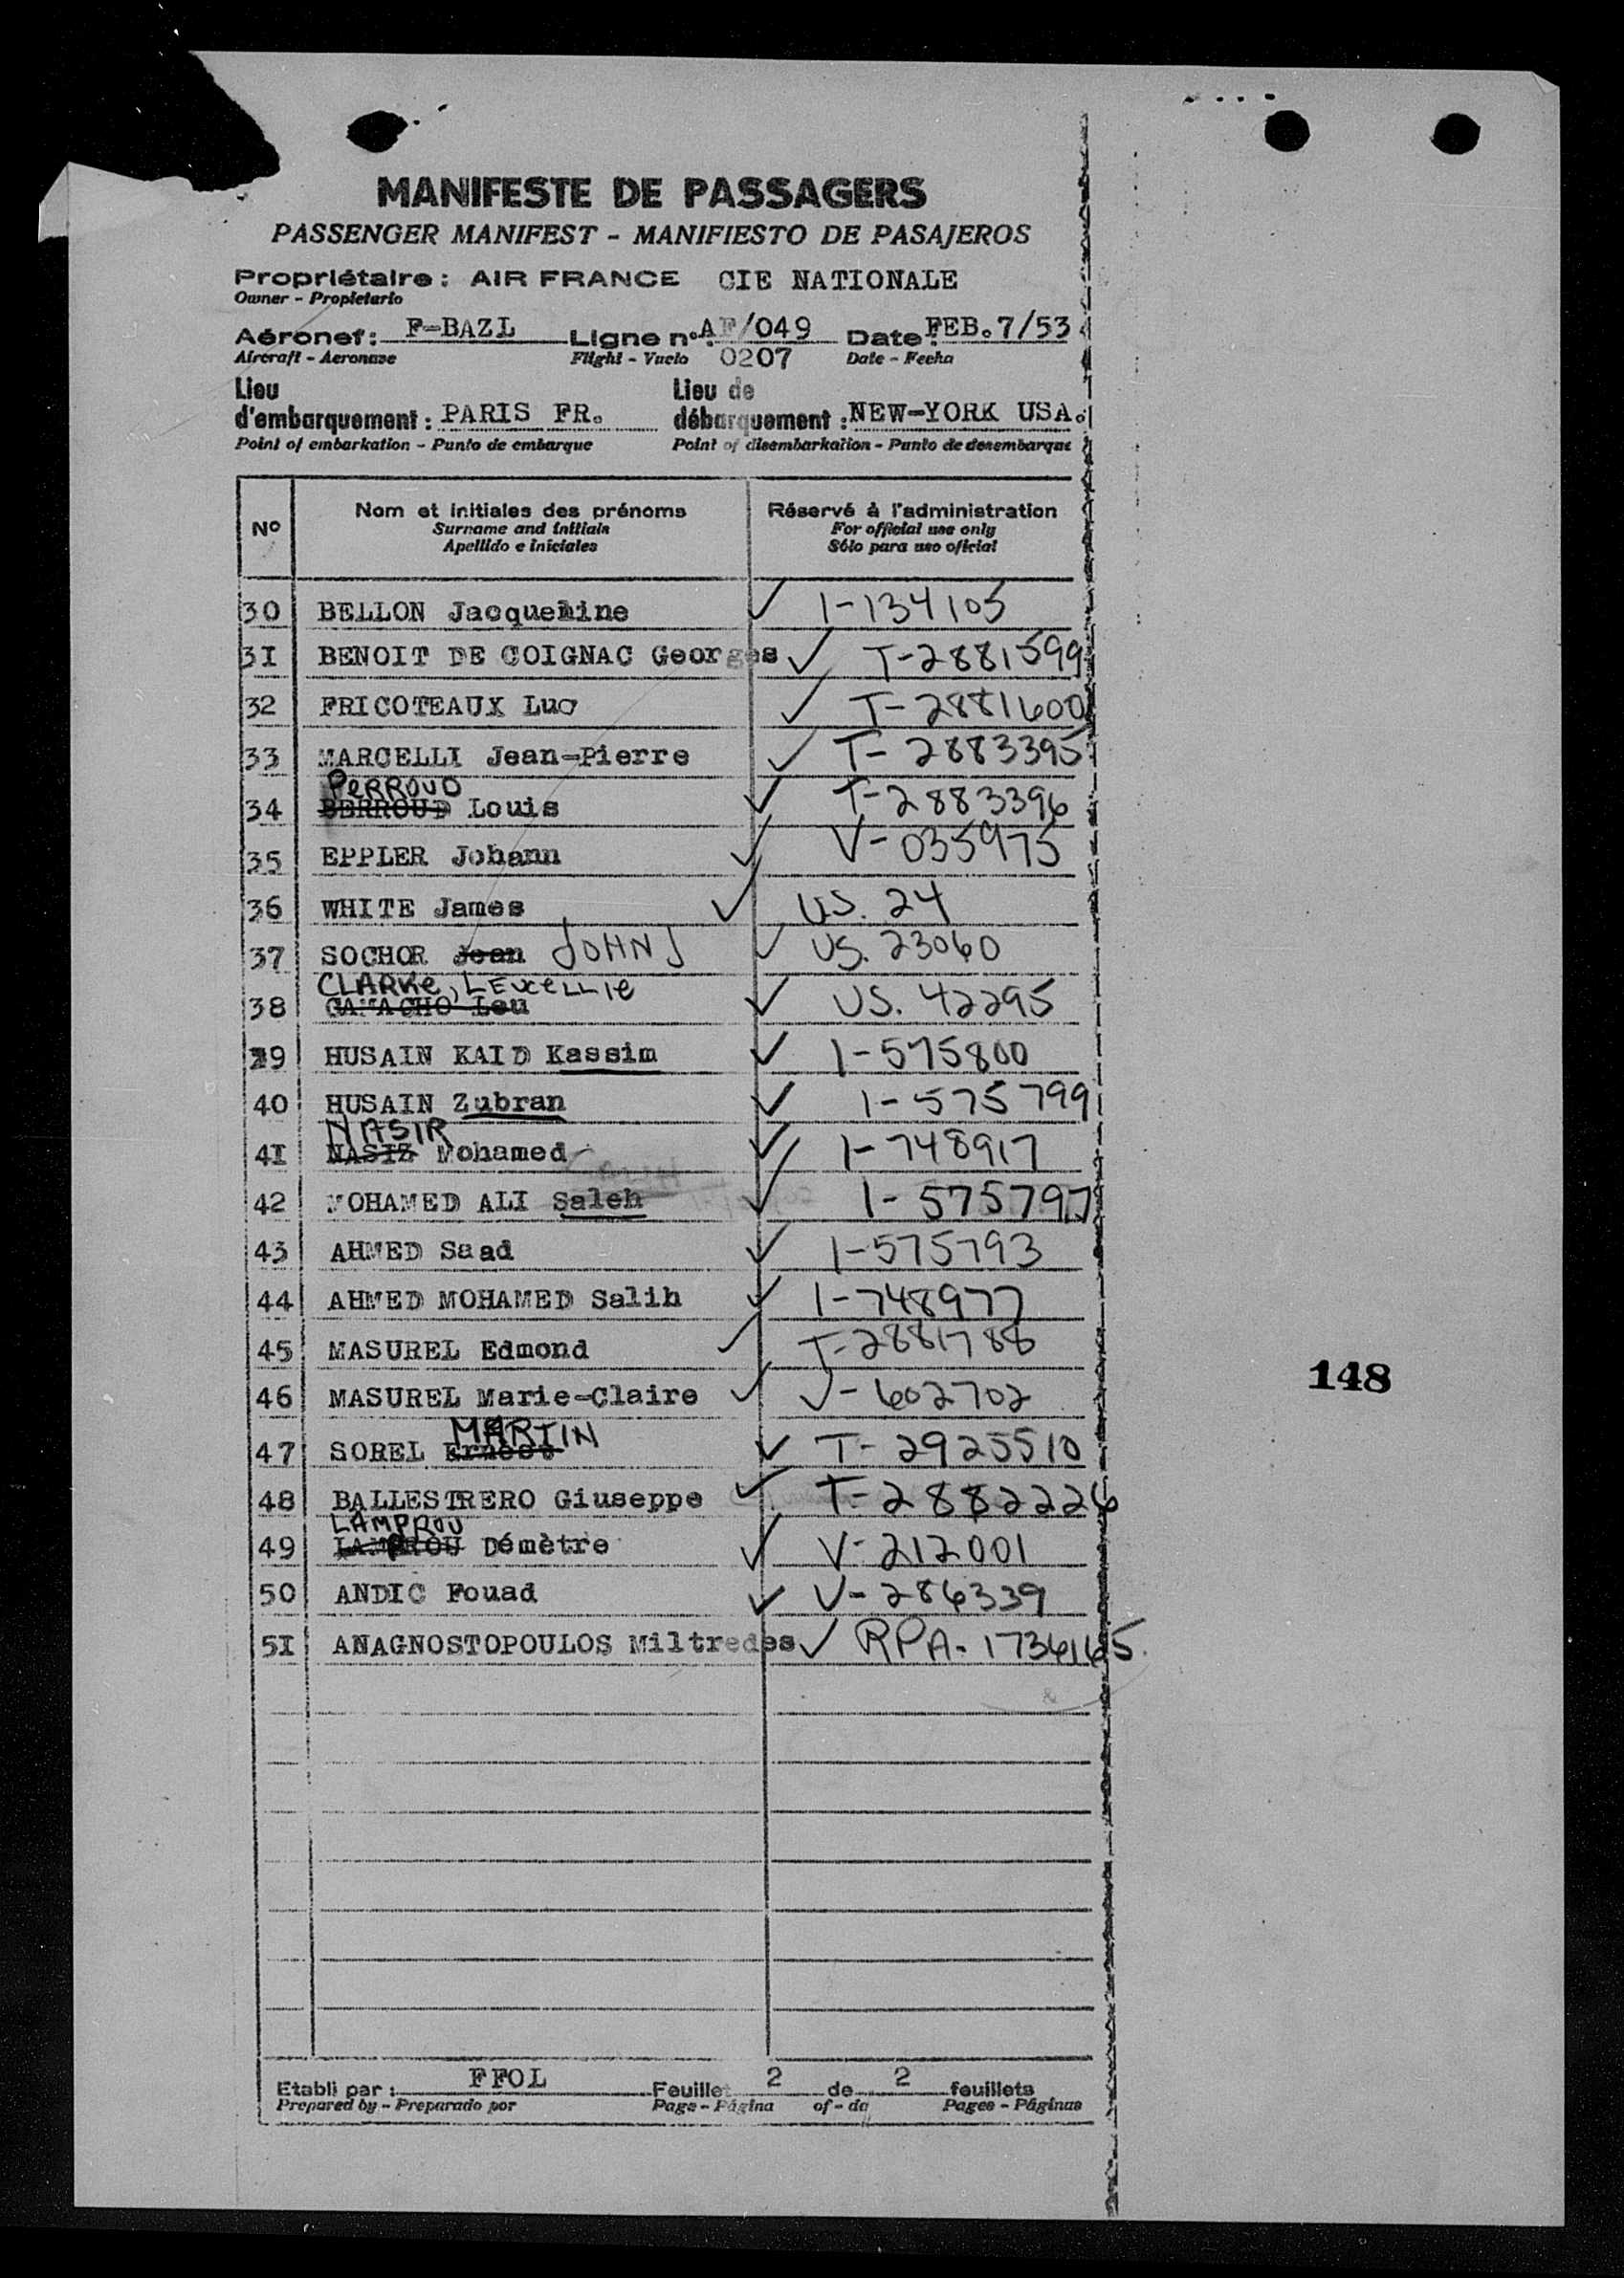 MANIFESTE DE PASSAGERS
PASSENGER MANIFEST - MANIFIESTO DE PASAJEROS
Propriétaire : AIR FRANCE CIE NATIONALE
Owner - Propietario
Aéronef : F-BAZL Ligne n° : AF/049 Date : FEB.7/53
Aircraft - Aeronave Flight - Vuelo 0207 Date - Fecha
Lieu Lieu de
d'embarquement : PARIS FR. débarquement : NEW-YORK USA.
Point of embarkation - Punto de embarque Point of disembarkation - Punto de desembarque
N° Nom et initiales des prénoms Réservé à l'administration
Surname and initials For official use only
Apellido e iniciales Sólo para uso oficial
30 BELLON Jacqueline ✓ 1-134105
3I BENOIT DE COIGNAC Georges ✓ T-2881599
32 FRICOTEAUX Luc ✓ T-2881600
33 MARCELLI Jean-Pierre ✓ T-2883395
PERROUD
34 BERROUD Louis ✓ T-2883396
35 EPPLER Johann ✓ V-035975
36 WHITE James ✓ US. 24
37 SOCHOR Jean JOHN J ✓ US. 23060
CLARKE, LEUCELLIE
38 GAMACHO Leu ✓ US. 42295
39 HUSAIN KAID Kassim ✓ 1-575800
40 HUSAIN Zubran ✓ 1-575799
NASIR
4I NASIZ Mohamed ✓ 1-748917
42 MOHAMED ALI Saleh ✓ 1-575797
43 AHMED Saad ✓ 1-575793
44 AHMED MOHAMED Salih ✓ 1-748977
45 MASUREL Edmond ✓ T-2881788
46 MASUREL Marie-Claire ✓ V-602702
MARTIN
47 SOREL Ernest ✓ T-2925510
48 BALLESTRERO Giuseppe ✓ T-2882226
LAMPROU
49 LAMPROU Démètre ✓ V-212001
50 ANDIC Fouad ✓ V-286339
5I ANAGNOSTOPOULOS Miltredes ✓ RPA-1736165
148
Etabli par : FFOL Feuillet 2 de 2 feuillets
Prepared by - Preparado por Page - Página of - da Pages - Páginas